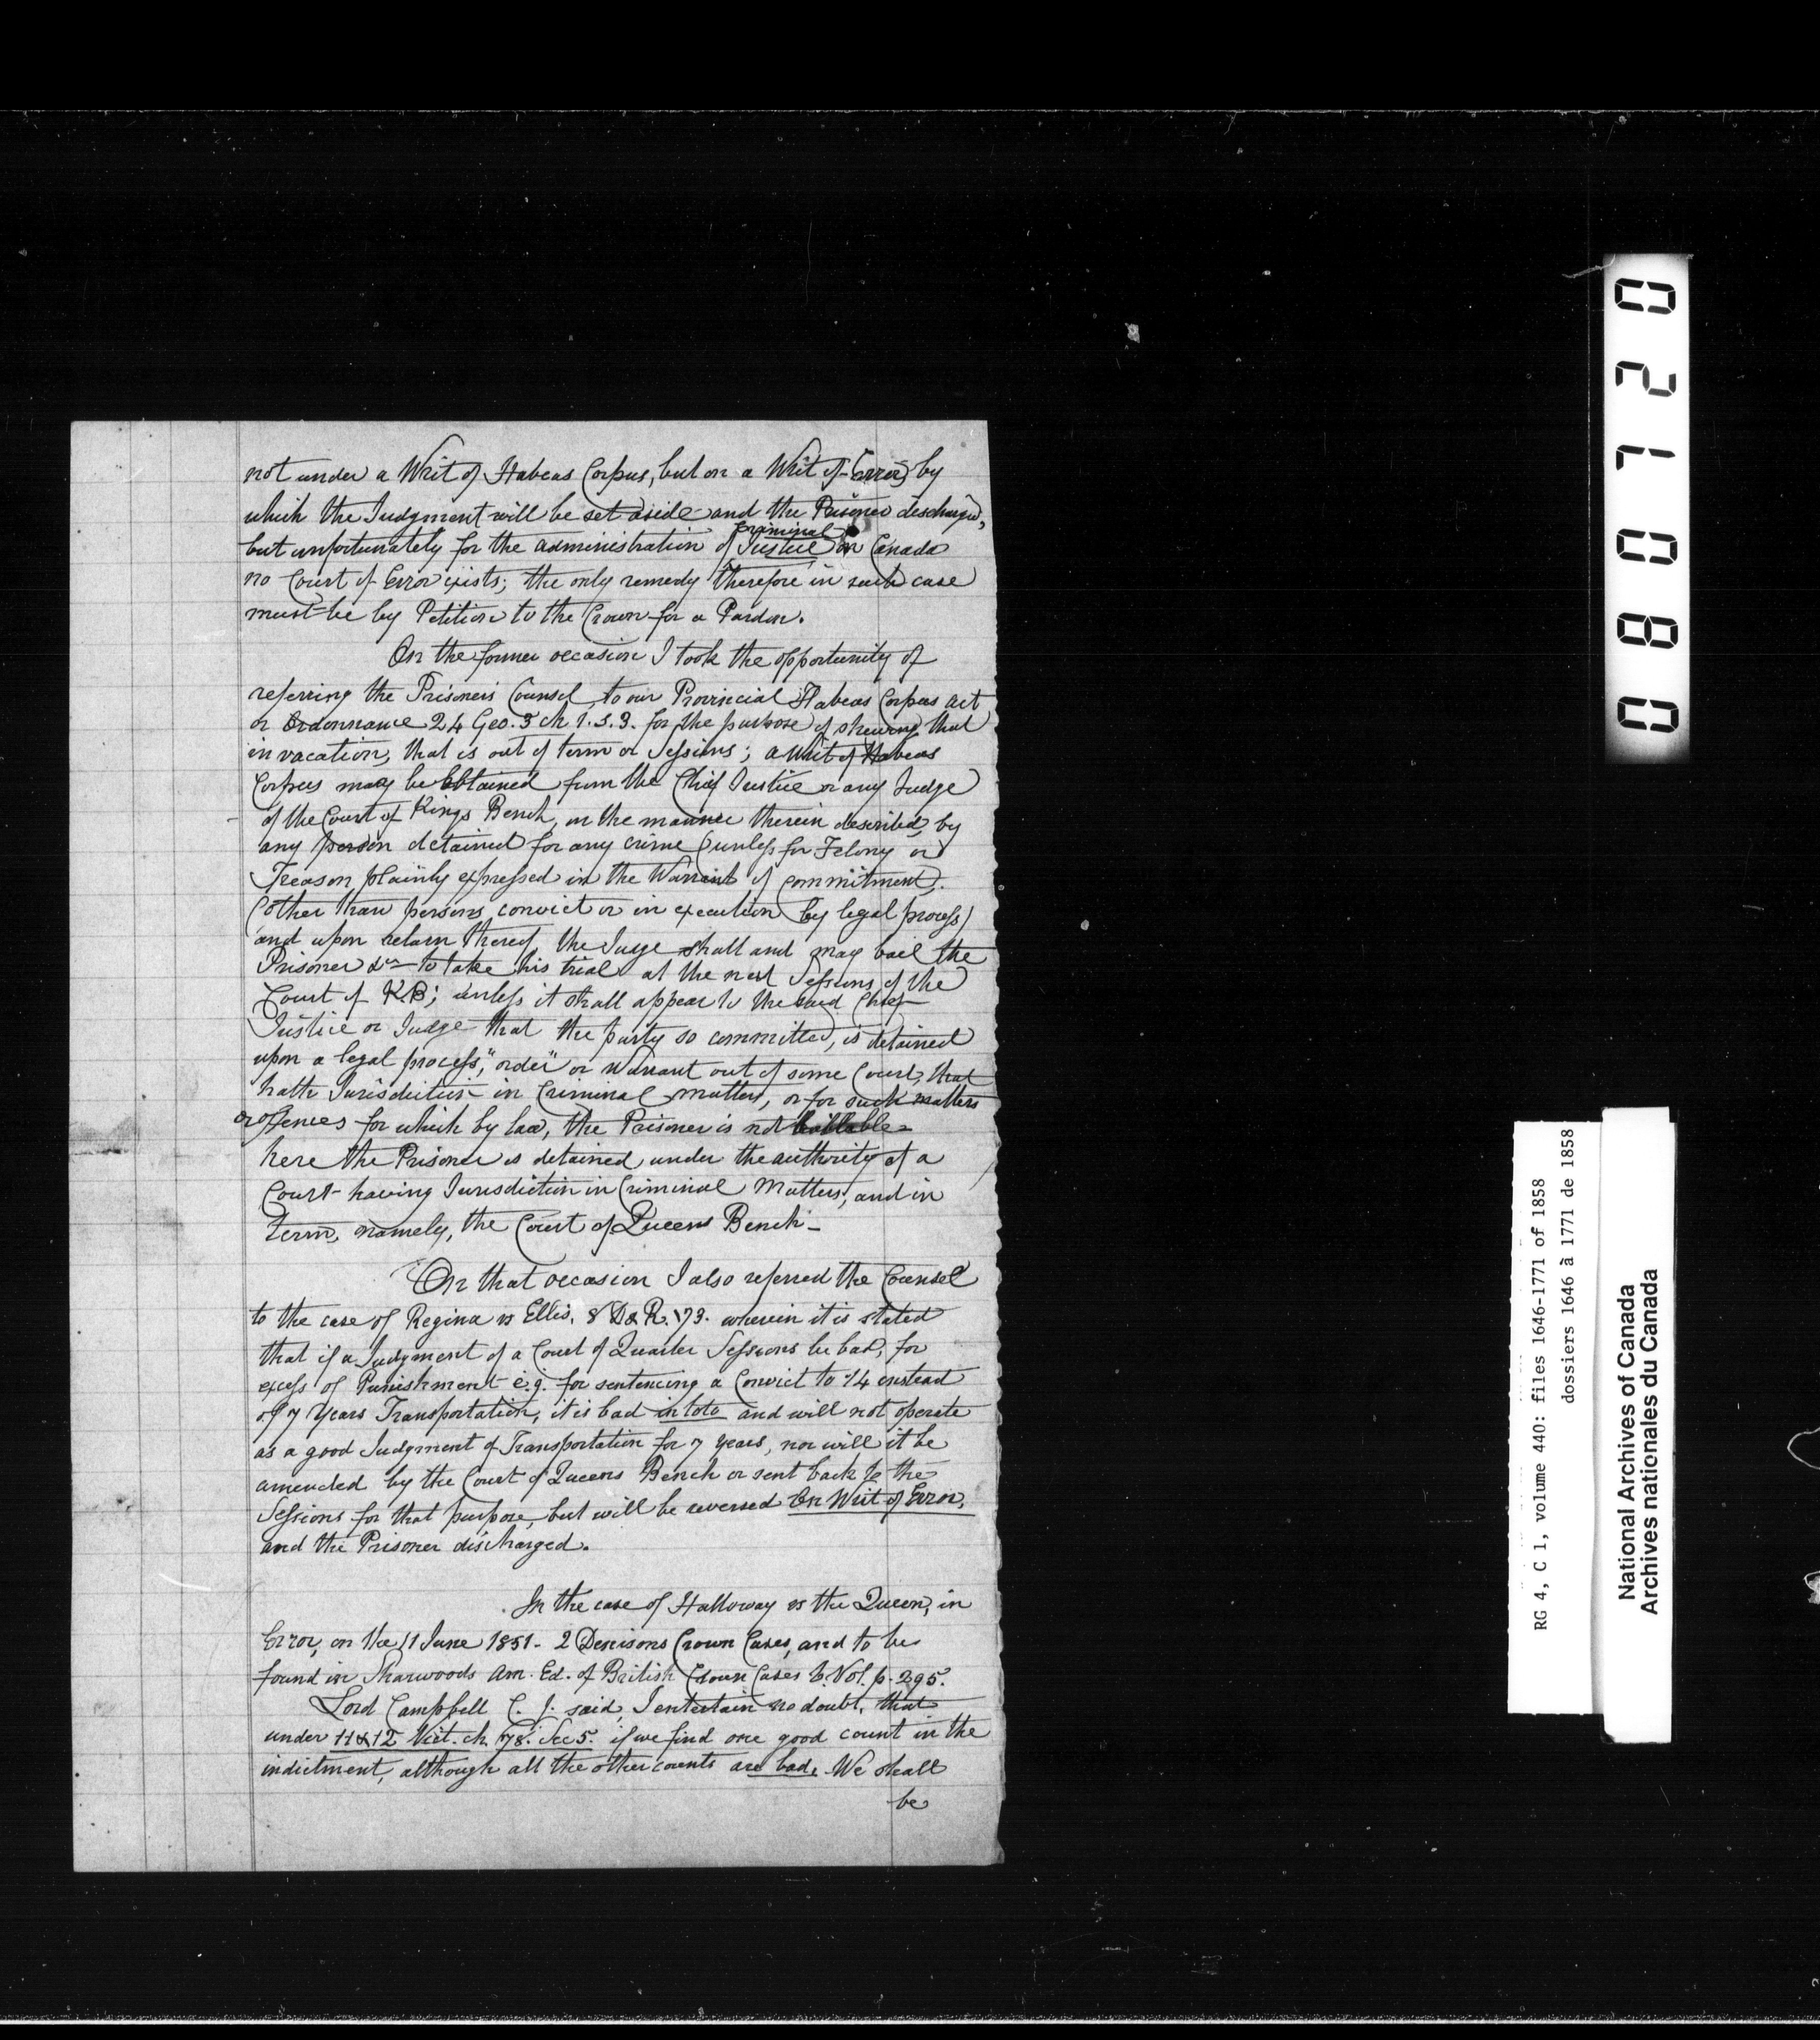 not under a Writ of Habeas Corpus, but on a Writ of Error, by
which the Judgment will be set aside and the Prisoner discharged,
criminal
but unfortunately for the administration of Justice in Canada
no Court of Error exists; the only remedy therefore in such case
must be by Petition to the Crown for a Pardon.
On the former occasion I took the opportunity of
referring the Prisoner's Counsel, to our Provincial Habeas Corpus act
or Ordonnance 24 Geo. 3 ch 1. S. 3. for the purpose of shewing that
in vacation, that is out of term or Sessions; a Writ of Habeas
Corpus may be obtained from the Chief Justice or any Judge
of the Court of Kings Bench, in the manner therein described, by
any person detained for any crime (unless for Felony or
Treason plainly expressed in the Warrant of commitment).
(other than persons convict or in execution by legal process)
and upon return thereof, the Judge shall and may bail the
Prisoner &c to take his trial at the next Sessions of the
Court of K.B; unless it shall appear to the said Chief
Justice or Judge that the party so committed, is detained
upon a legal process, "order" or Warrant out of some Court, that
hath Jurisdiction in Criminal matters, or for such matters
or offences for which by law, the Prisoner is not bailable -
here the Prisoner is detained under the authority of a
Court having Jurisdiction in Criminal Matters, and in
term, namely, the Court of Queens Bench -
On that occasion I also referred the Counsel
to the case of Regina vs Ellis. 8 D & R. 173. wherein it is stated
that if a Judgment of a Court of Quarter Sessions be bad, for
excess of Punishment e.g. for sentencing a Convict to 14 instead
of 7 Years Transportation, it is bad in toto and will not operate
as a good Judgment of Transportation for 7 years, nor will it be
amended by the Court of Queens Bench or sent back to the
Sessions for that purpose, but will be reversed On Writ of Error,
and the Prisoner discharged.
In the case of Halloway vs the Queen, in
Error, on the 11 June 1851 - 2 Denisons Crown Cases, and to be
found in Sharwoods Am. Ed. of British Crown Cases Vol. p. 295.
Lord Campbell C. J. said, I entertain no doubt, that
under 11 & 12 Vict. ch. 78. Sec 5. if we find one good count in the
indictment, although all the other counts are bad, We shall
be
080120
RG 4, C 1, volume 440: files 1646-1771 of 1858
dossiers 1646 à 1771 de 1858
National Archives of Canada
Archives nationales du Canada